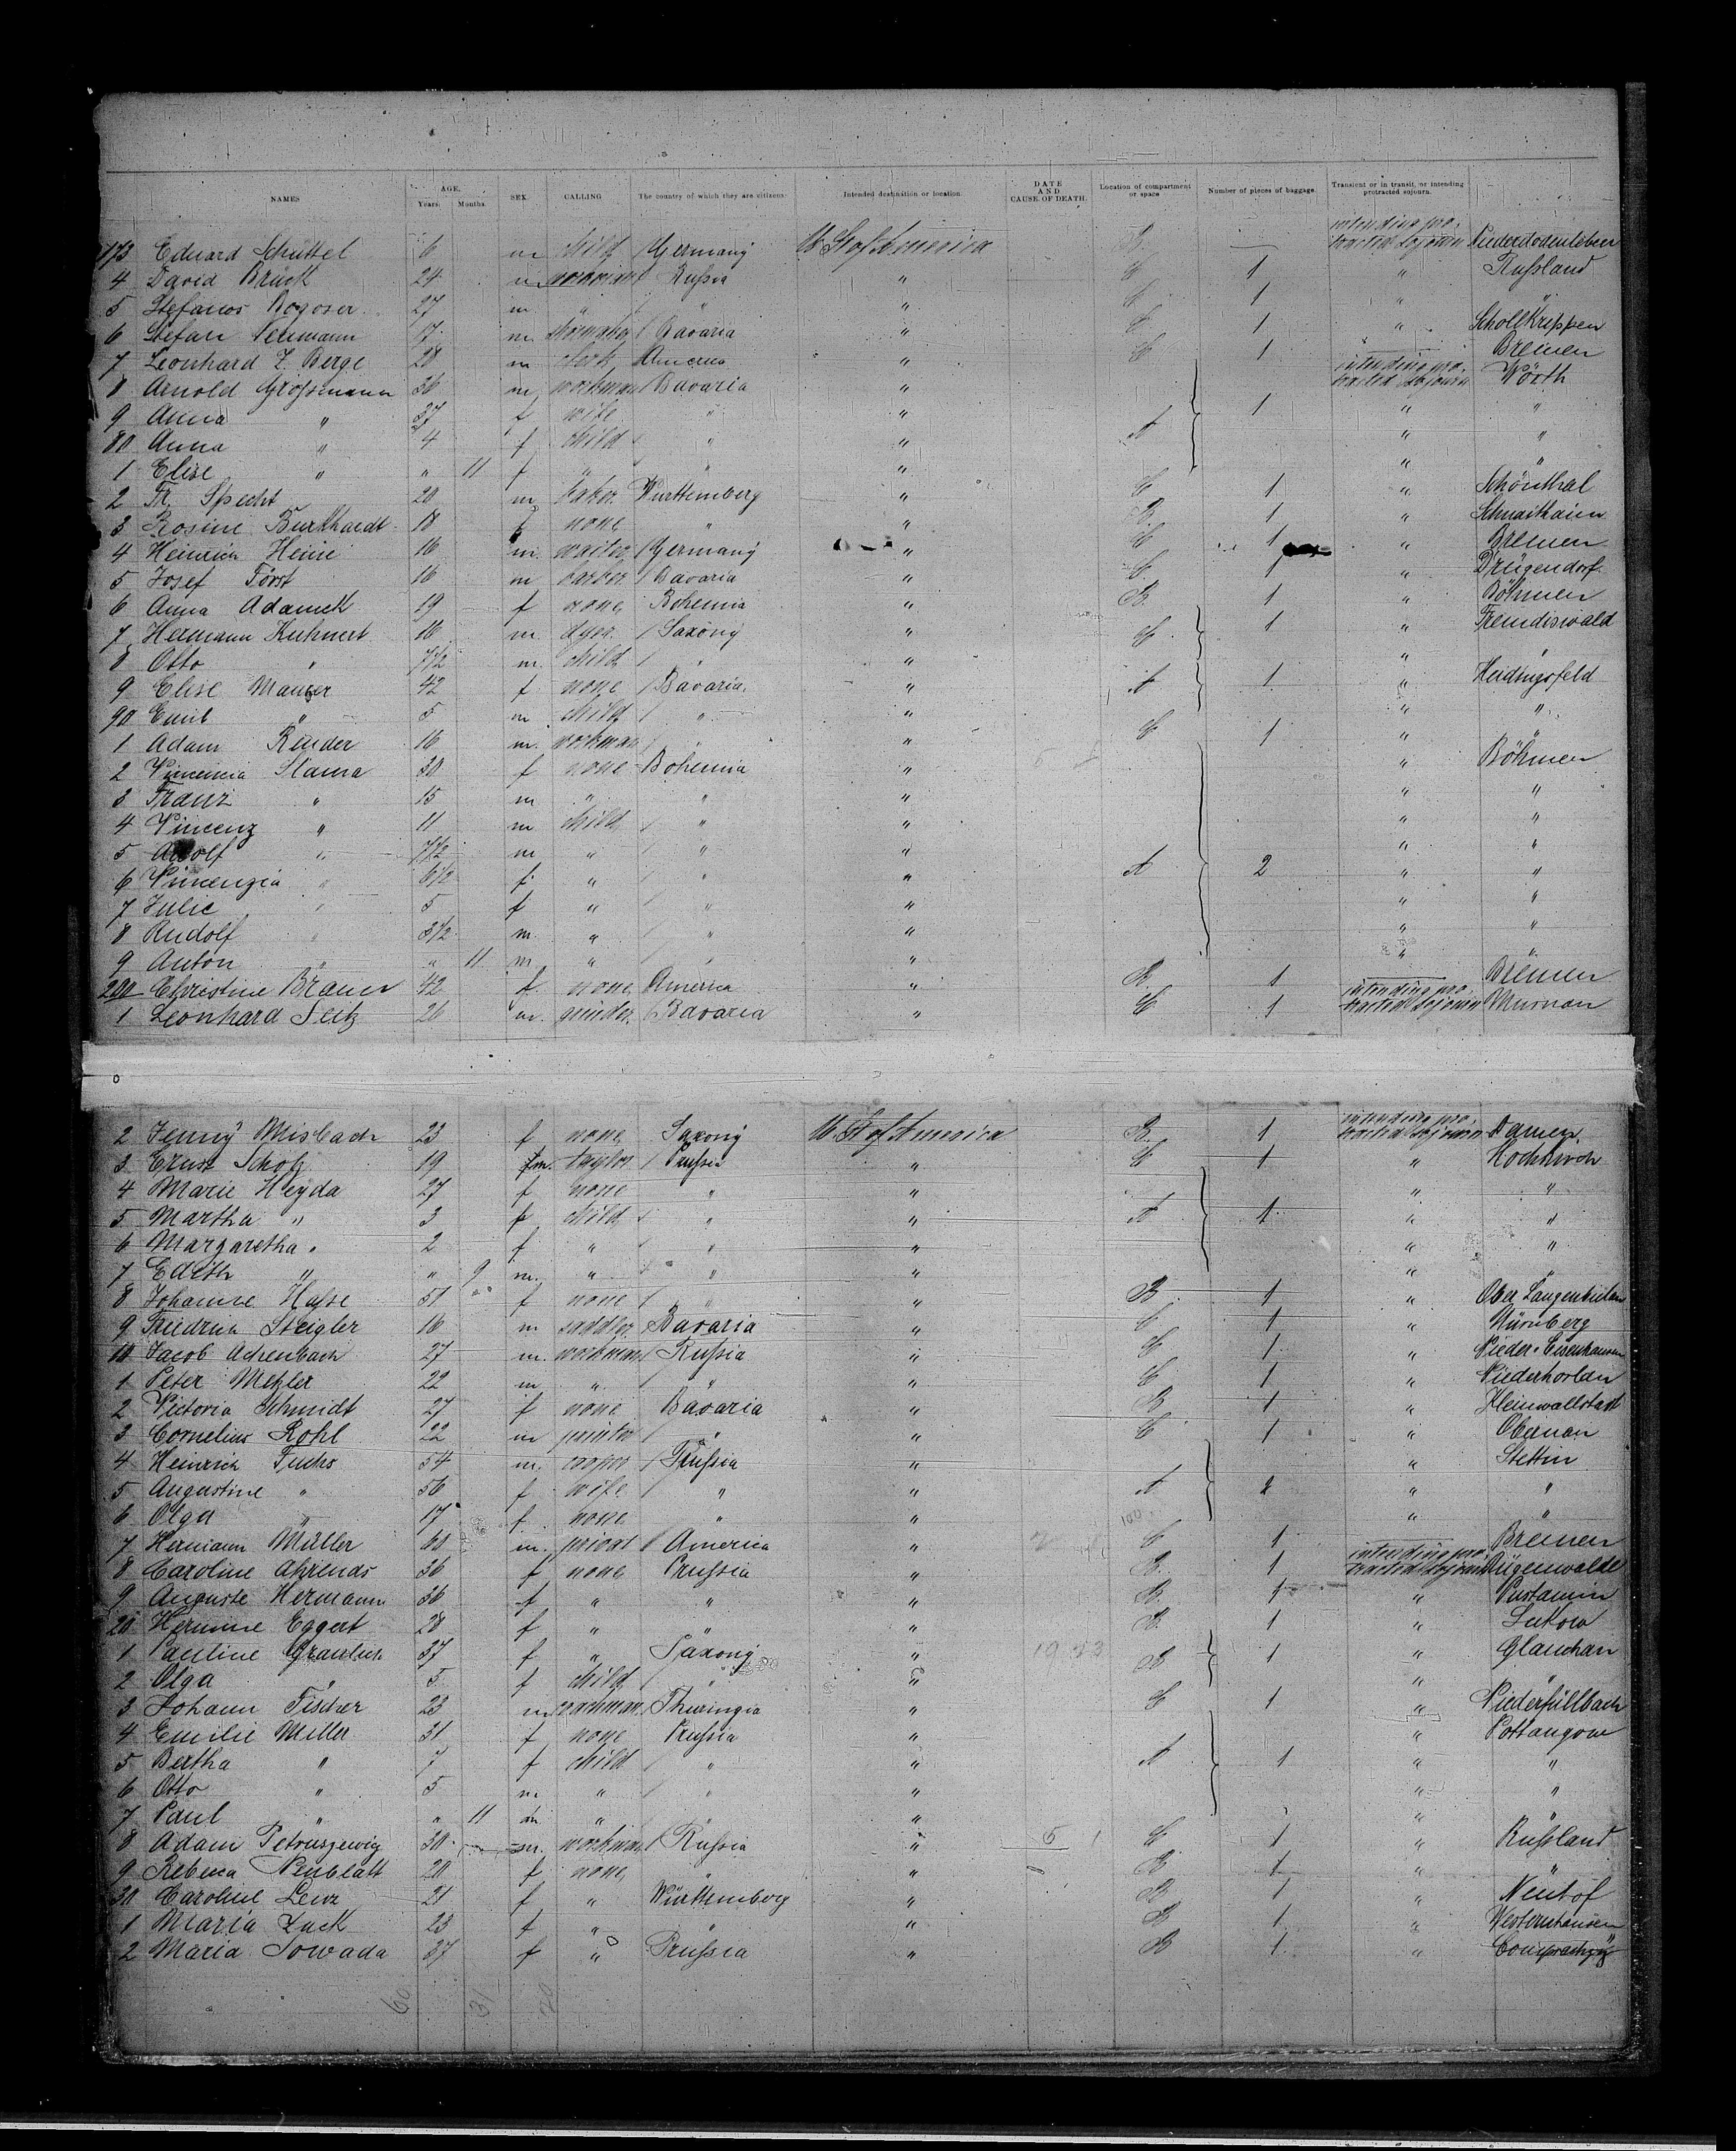 NAMES AGE. Years. Months. SEX. CALLING The country of which they are citizens. Intended destination or location. DATE AND CAUSE OF DEATH. Location of compartment or space Number of pieces of baggage. Transient or in transit, or intending protracted sojourn.
173 Eduard Schüttel 6 m child Germany U. St of America — intending protracted sojourn
4 David Brück 24 m Russia " C 1 " Rußland
5 Stefanos Bogoser 27 m " " " C 1 " "
6 Stefan Neumann 17 m Bavaria " C 1 " Schöllkrippen
7 Leonhard Z. Berge 28 m clerk America " C 1 — Bremen
8 Arnold Großmann 36 m workman Bavaria " intending protracted sojourn Wörth
9 Anna " 37 f wife " " A 1 " "
80 Anna " 4 f child " " " "
1 Elise " " 11 f " " " " "
2 Fr. Specht 20 m baker Württemberg " C 1 " Schönthal
3 Rosine Burkhardt 18 f none " " B 1 "
4 Heinrich Heine 16 m waiter Germany " C 1 " Bremen
5 Josef Först 16 m barber Bavaria " C 1 " Drügendorf
6 Anna Adamek 19 f none Bohemia " B 1 " Böhmen
7 Hermann Kuhnert 16 m dyer Saxony " C 1 " Fremdiswald
8 Otto " 7 1/2 m child " " " "
9 Elise Maurer 42 f none Bavaria " A 1 " Heidingsfeld
90 Emil " 5 m child " " " "
1 Adam Rauder 16 m workman " " C 1 " "
2 Vincencia Slama 30 f none Bohemia " " Böhmen
3 Franz " 15 m " " " " "
4 Vincenz " 11 m child " " " "
5 Adolf " 7 1/2 m " " " " "
6 Vincenzia " 6 1/2 f " " " A 2 " "
7 Julie " 5 f " " " " "
8 Rudolf " 3 1/2 m " " " " "
9 Anton " " 11 m " " " " "
200 Christine Brauer 42 f none America " B 1 — Bremen
1 Leonhard Seitz 26 m Bavaria " C 1 intending protracted sojourn Murnau
2 Jenny Misbach 23 f none Saxony U. St of America B 1 intending protracted sojourn
3 Ernst Scholz 19 m taylor Prussia " C 1 " Hochkirch
4 Marie Heyda 27 f none " " " "
5 Martha " 3 f child " " A 1 " "
6 Margaretha " 2 f " " " " "
7 Edith " " 9 m " " " " "
8 Johanne Haßse 51 f none " " B 1 " Ober Langenbielau
9 Friedrich Steigler 16 m saddler Bavaria " C 1 " Nürnberg
10 Jacob Achenbach 27 m workman Russia " C 1 " Nieder-Eisenhausen
1 Peter Metzler 22 m " " " C 1 "
2 Victoria Schmidt 27 f none Bavaria " B 1 " Kleinwallstadt
3 Cornelius Rohl 22 m " " C 1 " Obernau
4 Heinrich Fuchs 54 m cooper Prussia " " Stettin
5 Augustine " 56 f wife " " A 2 " "
6 Olga " 17 f none " " " "
7 Hermann Müller 60 m privat America " C 1 — Bremen
8 Caroline Ahrends 36 f none Prussia " B 1 intending protracted sojourn Rügenwalde
9 Auguste Hermann 36 f " " " B 1 " Pustamin
20 Hermine Eggert 28 f " " " B 1 "
1 Pauline Graulich 37 f " Saxony " B 1 " Glauchau
2 Olga " 5 f child " " " "
3 Johann Fischer 23 m coachman Thuringia " C 1 " Niederfüllbach
4 Emilie Miller 31 f none Prussia " " Pottangow
5 Bertha " 7 f child " " A 1 " "
6 Otto " 5 m " " " " "
7 Paul " " 11 m " " " " "
8 Adam Petruszewig 30 m workman Russia " C 1 " Rußland
9 Rebecca Neublatt 20 f none " " B 1 " "
30 Caroline Lenz 21 f " Württemberg " B 1 " Neuhof
1 Maria Zuck 23 f " " " B 1 " Westernhausen
2 Maria Sowada 37 f " Prussia " B 1 "
60 31 20